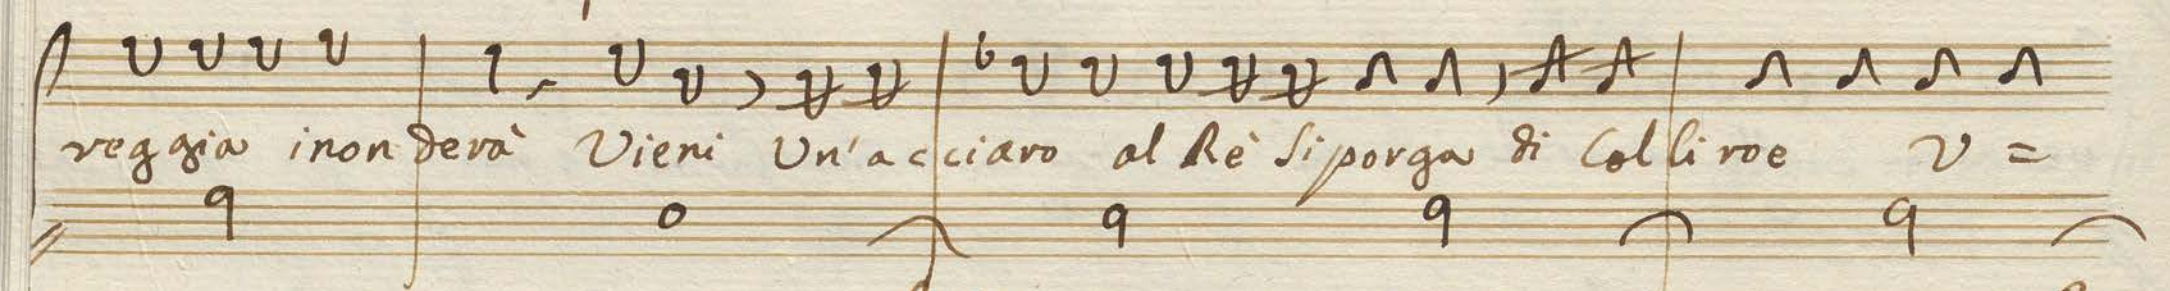 reggia inonderà Vieni Un'acciaro al Rè si porga di Calliroe v =